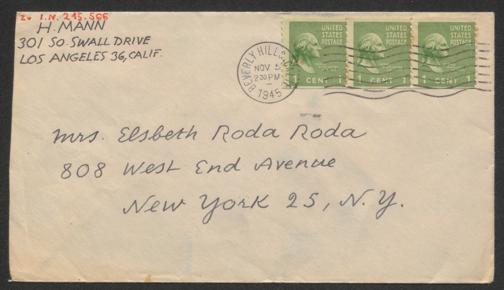 Zu I.N. 215.566
H. MANN
301 SO. SWALL DRIVE
LOS ANGELES 36, CALIF.
UNITED STATES POSTAGE
1 CENT 1
UNITED STATES POSTAGE
1 CENT 1
UNITED STATES POSTAGE
1 CENT 1
BEVERLY HILLS
NOV 5
2 30 PM
1945
Mrs. Elsbeth Roda Roda
808 West End Avenue
New York 25, N.Y.